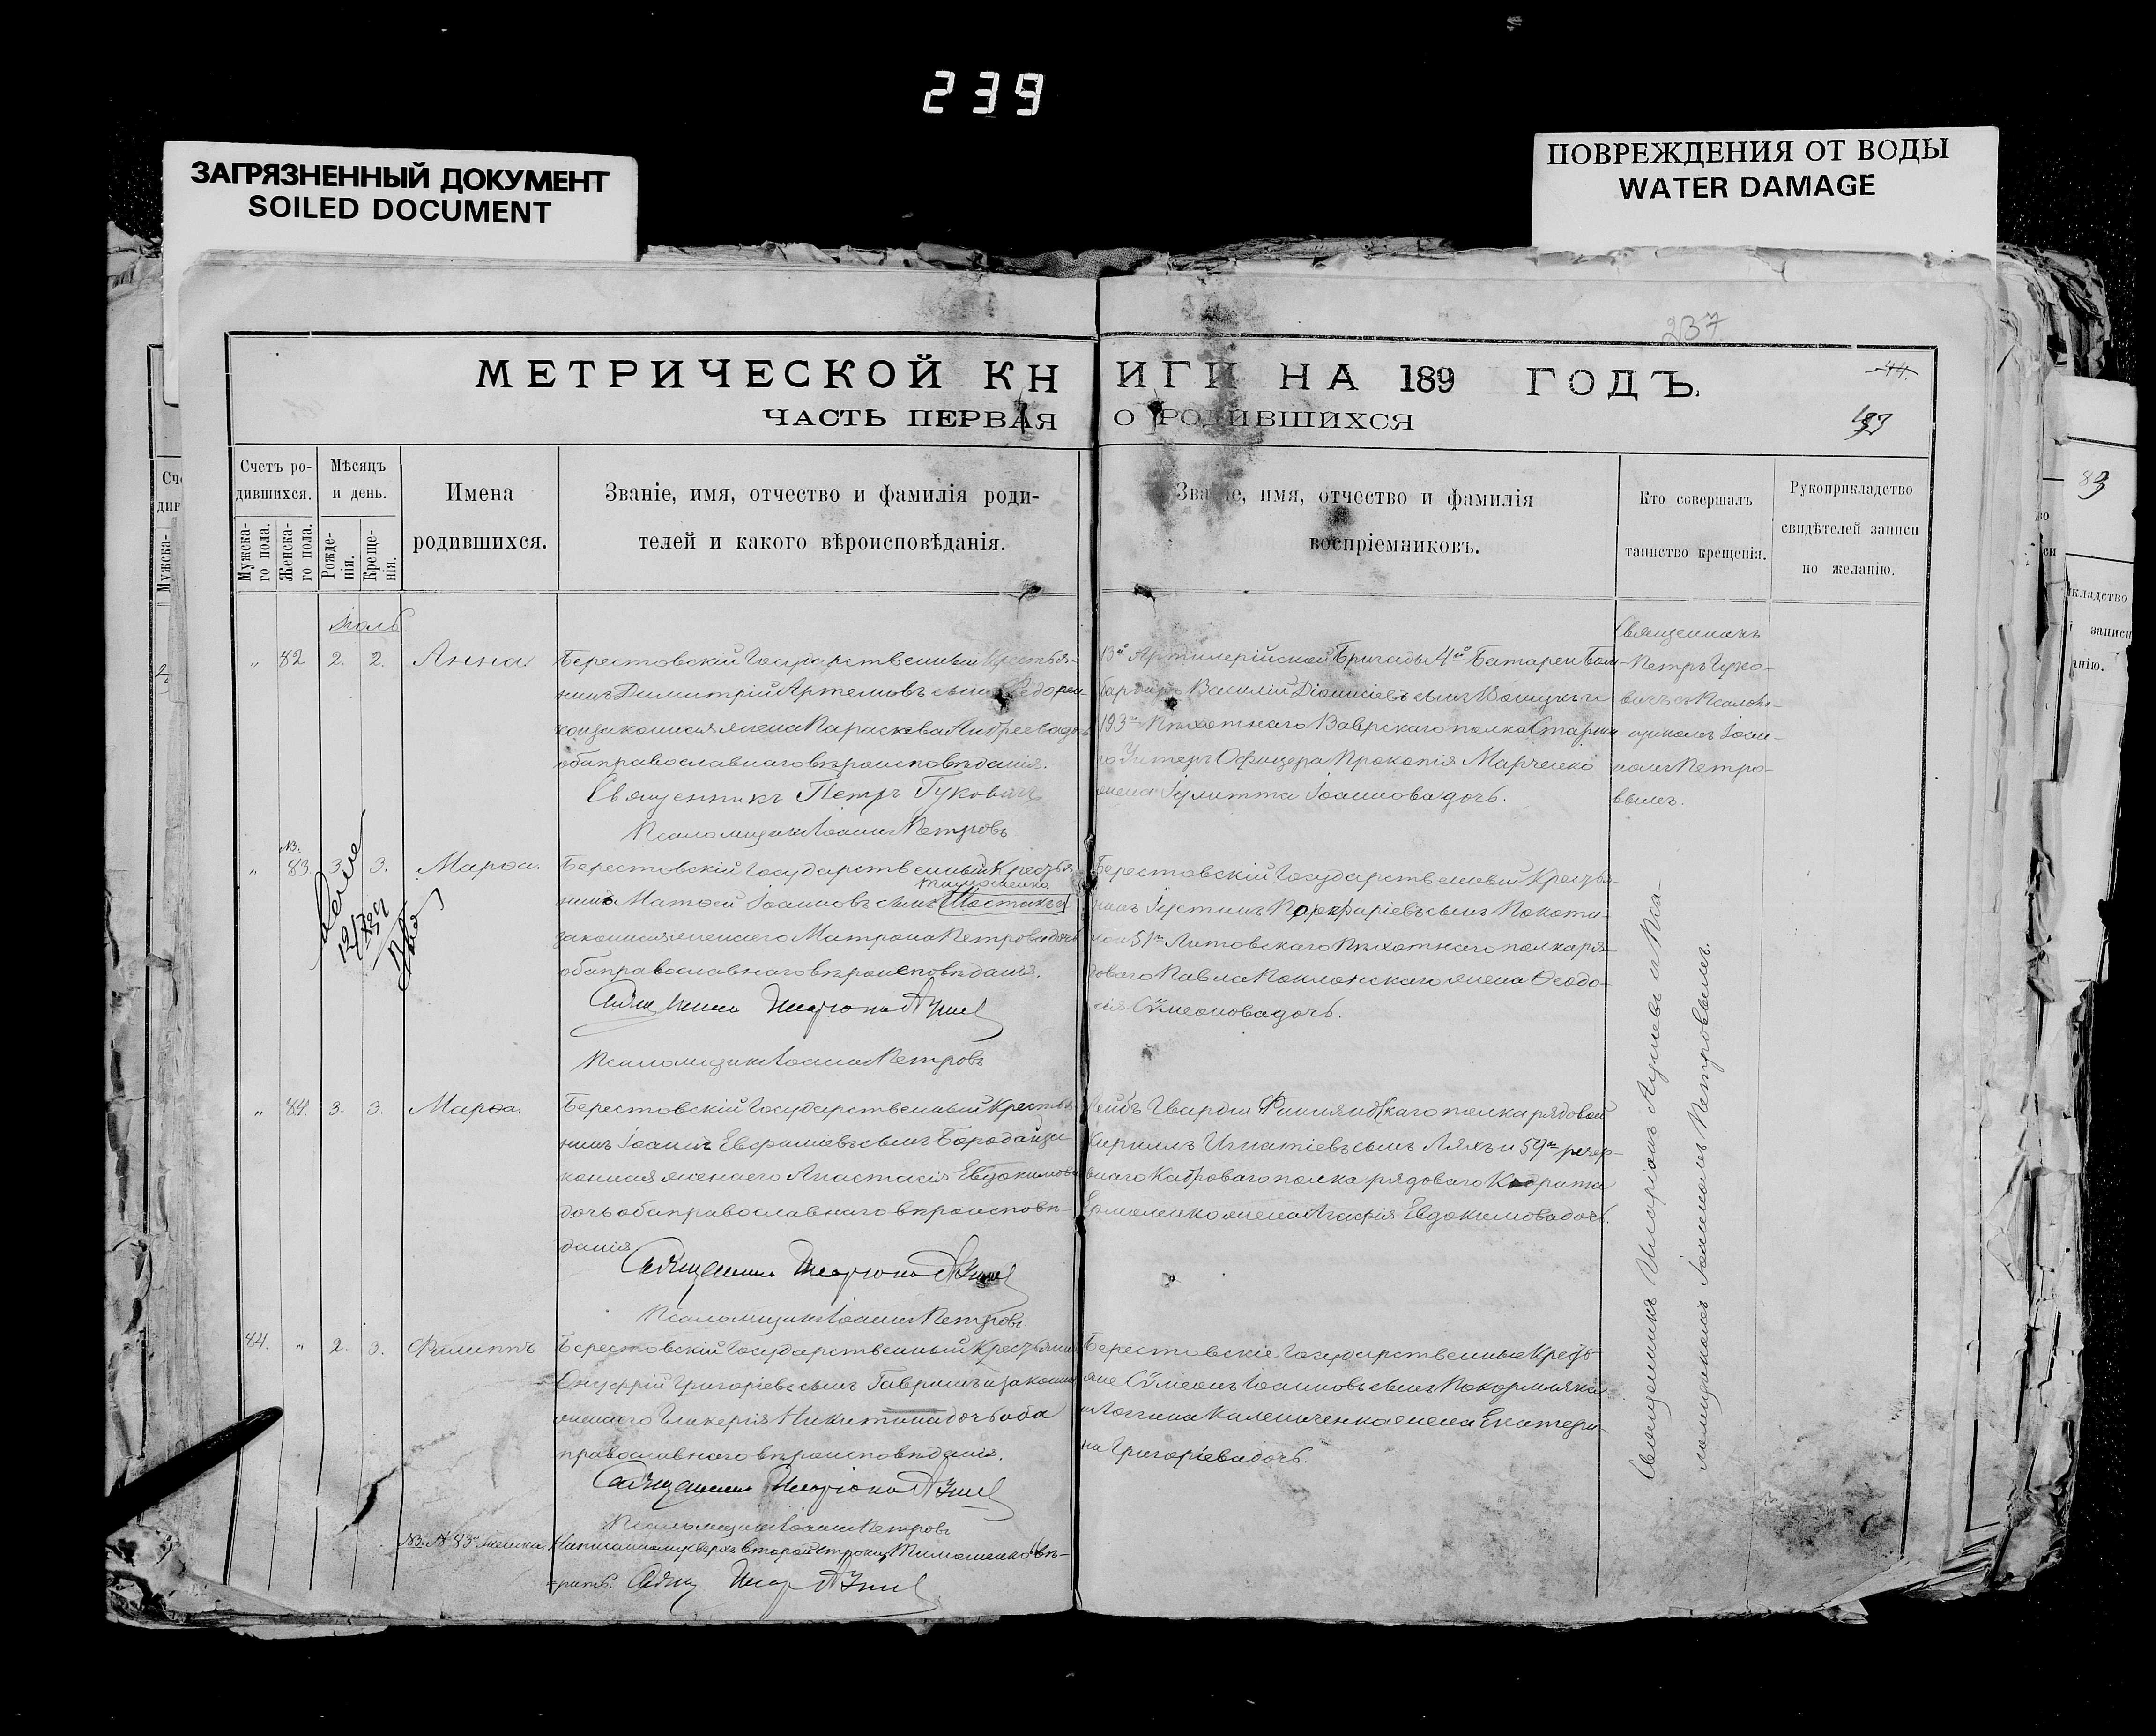 239
ЗАГРЯЗНЕННЫЙ ДОКУМЕНТ
SOILED DOCUMENT
ПОВРЕЖДЕНИЯ ОТ ВОДЫ
WATER DAMAGE
237
МЕТРИЧЕСКОЙ КНИГИ НА 189 ГОДЪ.
ЧАСТЬ ПЕРВАЯ О РОДИВШИХСЯ
44.
Счетъ ро-
дившихся.
Мужска-
го пола.
Женска-
го пола.
Мѣсяцъ
и день.
Рожде-
нія.
Креще-
нія.
Имена
родившихся.
Званіе, имя, отчество и фамилія роди-
телей и какого вѣроисповѣданія.
Званіе, имя, отчество и фамилія
воспріемниковъ.
Кто совершалъ
таинство крещенія.
Рукоприкладство
свидѣтелей записи
по желанію.
Іюль
„ 82 2. 2. Анна.
Берестовскій Государственный Крестья-
нинъ Димитрій Артемовъ сынъ Ѳедорен-
ко и законная жена Параскева Андреева дочь
оба православнаго вѣроисповѣданія.
Священникъ Петръ Гуковичъ
Псаломщикъ Іоаннъ Петровъ
13й Артилерійской Бригады 4ой Батареи Бом-
бардиръ Василій Діонисіевъ сынъ и
193го Пѣхотнаго Ваврскаго полка Старша-
го Унтеръ Офицера Прокопія Марченко
жена Іулитта Іоаннова дочь.
Священникъ
Петръ Гуко-
вичъ съ Псалом-
щикомъ Іоан-
номъ Петро-
вымъ.
NB.
„ 83. 3. 3. Марѳа.
Берестовскій Государственный Крестья-
Тимошенко
нинъ Матѳей Іоанновъ сынъ Шостакъ и
законная жена его Матрона Петрова дочь
оба православнаго вѣроисповѣданія.
Псаломщикъ Іоаннъ Петровъ
Берестовскій Государственный Крестья-
нинъ Іустинъ Порфиріевъ сынъ Покоти-
ло и 51го Литовскаго Пѣхотнаго полка ря-
доваго Павла Поклонскаго жена Ѳеодо-
сія Сѵмеонова дочь.
„ 84. 3. 3. Марѳа.
Берестовскій Государственный Крестья-
нинъ Іоаннъ Евфиміевъ сынъ Бородай и за-
конная жена его Анастасія Евдокимова
дочь оба православнаго вѣроисповѣ-
данія
Псаломщикъ Іоаннъ Петровъ
Лейбъ Гвардіи Финляндскаго полка рядовой
Кириллъ Игнатіевъ сынъ Ляхъ и 59го резер-
внаго Кадроваго полка рядоваго Кодрата
Ермоленко жена Агафія Евдокимова дочь.
84. „ 2. 3. Филиппъ
Берестовскій Государственный Крестьянинъ
Онуфрій Григоріевъ сынъ Гавришъ и законная
жена его Гликерія Никитина дочь оба
православнаго вѣроисповѣданія.
Псаломщикъ Іоаннъ Петровъ
Берестовскіе Государственные Кресть-
яне Сѵмеонъ Іоанновъ сынъ Покормяка
и Логгина Калениченка жена Екатери-
на Григоріева дочь.
Священникъ Иларіонъ и Пса-
ломщикомъ Іоанномъ Петровымъ.
NB. № 83й Написанному вверхъ второй строки „Тимошенко“ вѣ-
рить.